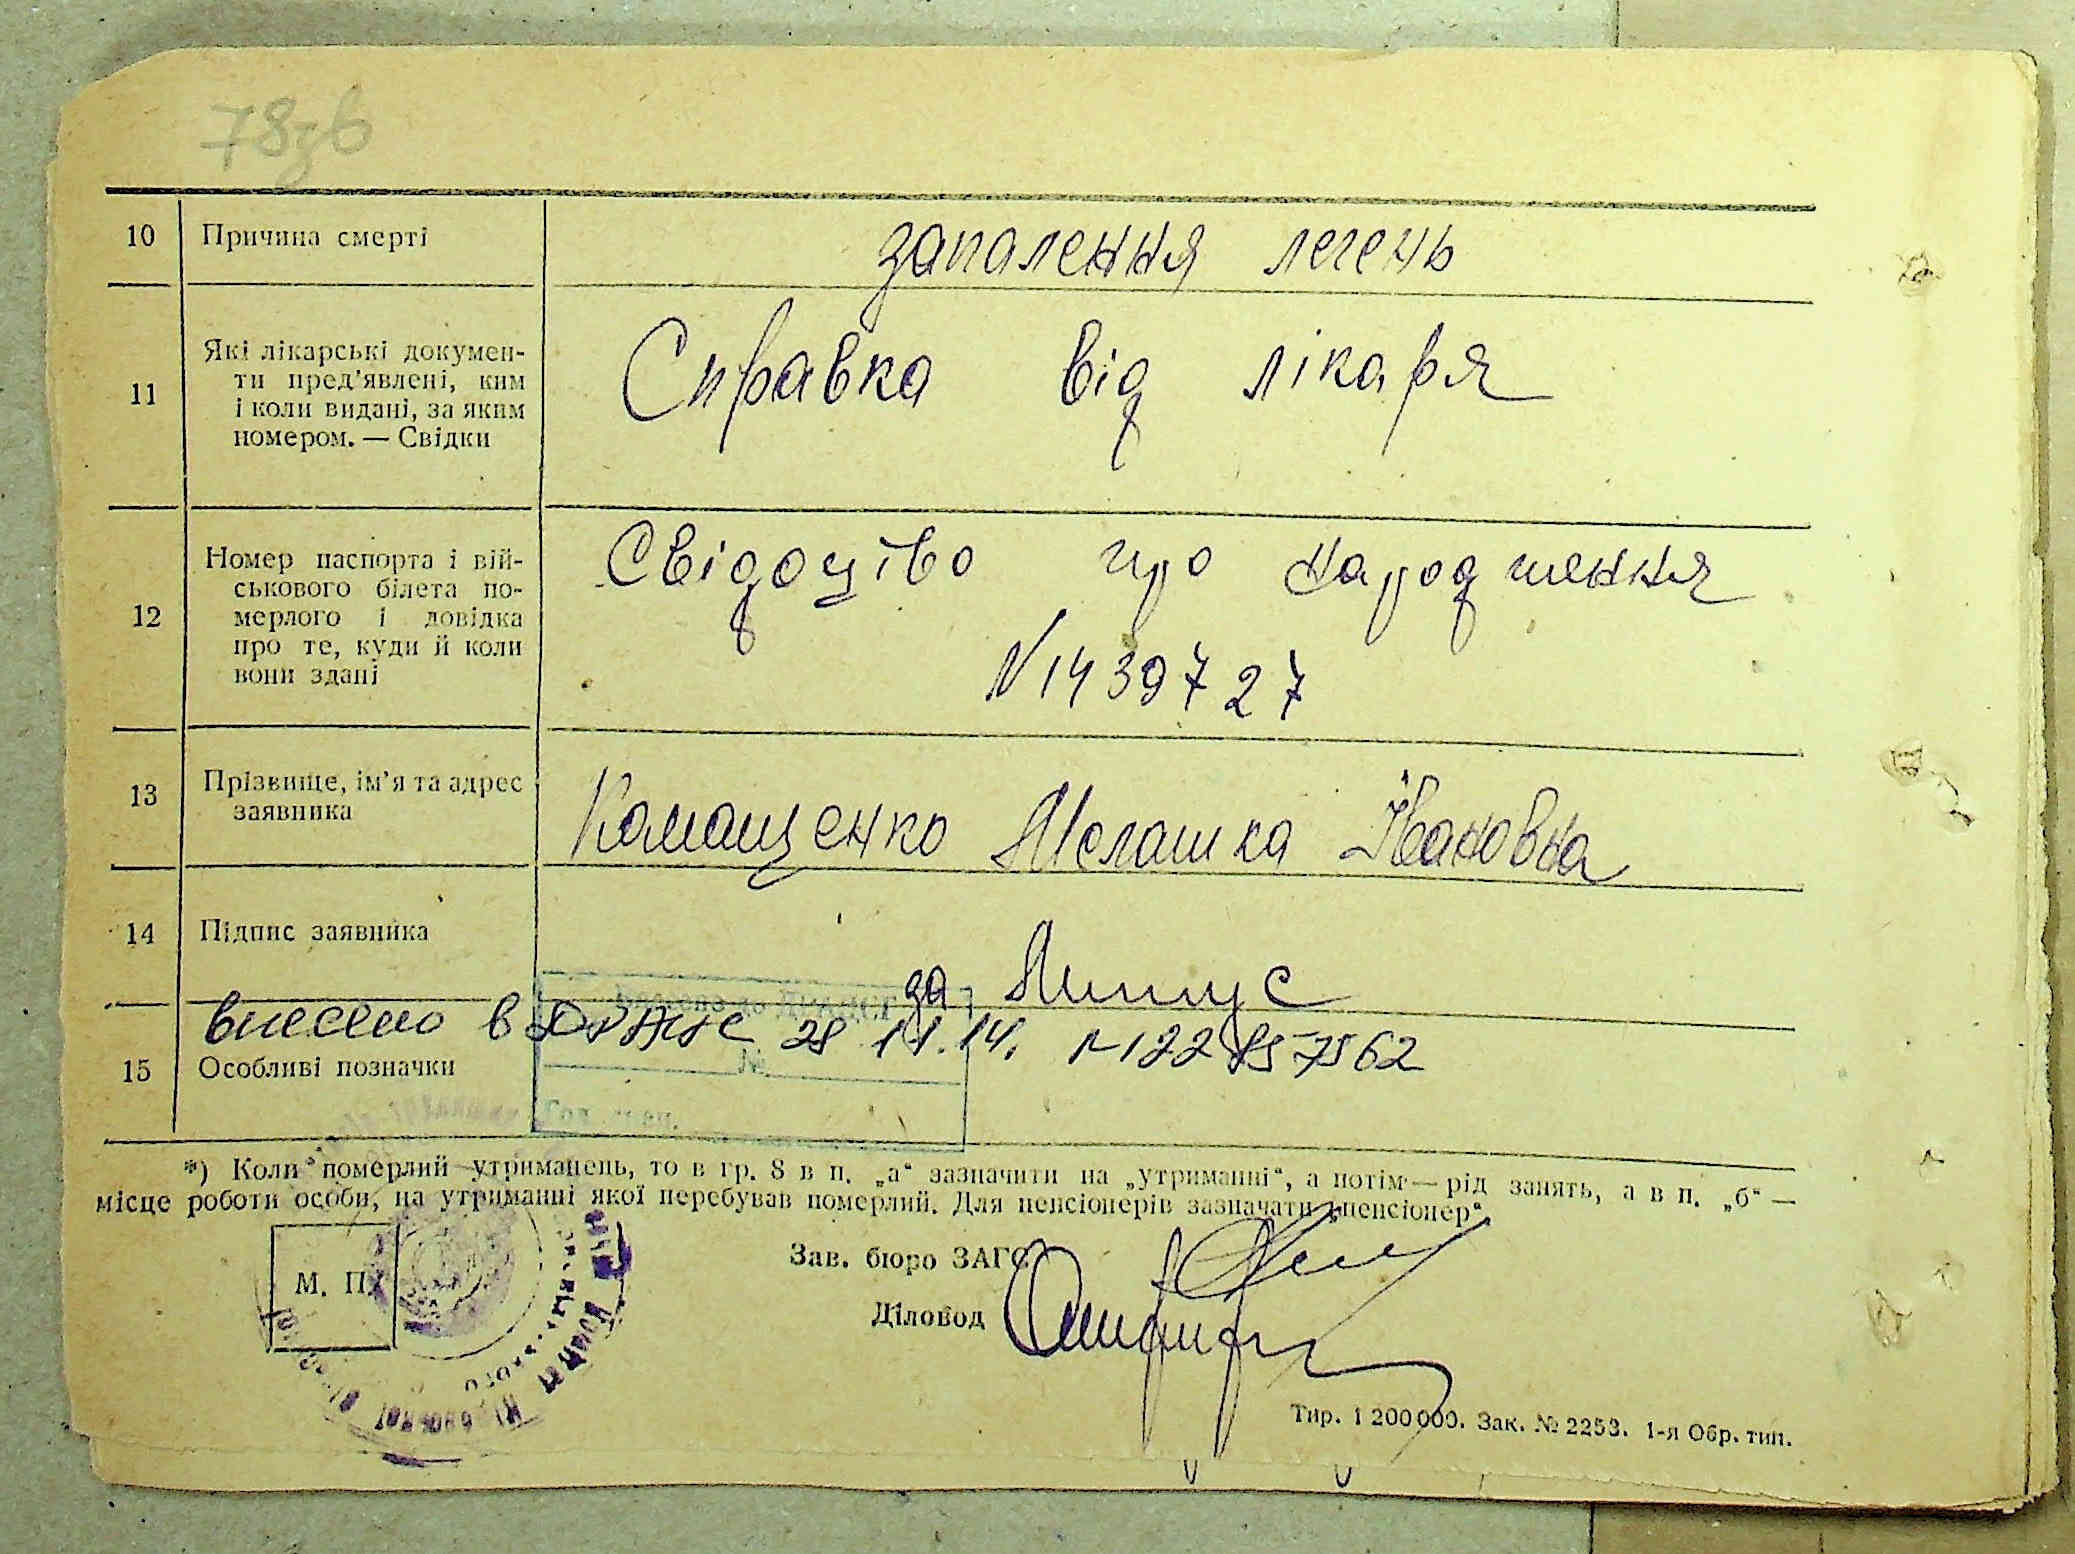 78зв
10 Причина смерті запалення легень
11 Які лікарські докумен-
ти пред'явлені, ким
і коли видані, за яким
номером. — Свідки
Справка від лікаря
12 Номер паспорта і вій-
ськового білета по-
мерлого і довідка
про те, куди й коли
вони здані
Свідоцтво про народження
N 1439727
13 Прізвище, ім'я та адрес
заявника
Комащенко Мелашка Івановна
14 Підпис заявника
за
внесено в ДРАЦС 28 11.14. N 122
15 Особливі позначки
№
*) Коли померлий утриманець, то в гр. 8 в п. „а“ зазначити на „утриманні“, а потім — рід занять, а в п. „б“ —
місце роботи особи, на утриманні якої перебував померлий. Для пенсіонерів зазначати „пенсіонер“.
М. П.
Зав. бюро ЗАГС
Діловод
Тир. 1 200 000. Зак. № 2253. 1-я Обр. тип.